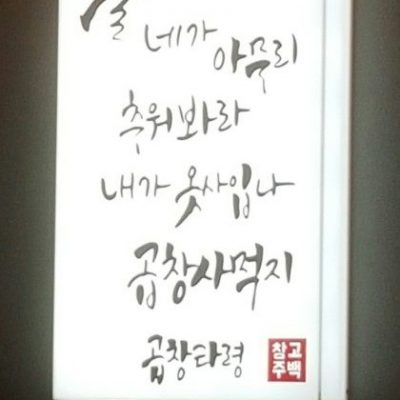 네가 아무리
추워봐라
내가 옷사입나
곱창사먹지
곱창타령
참고
주백